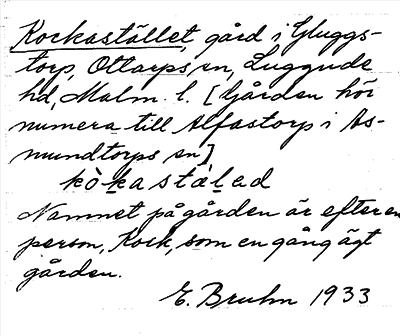 Kockastället, gård i Gluggs-
torp, Ottarps sn, Luggude
hd, Malm. l. [Gården hör
numera till Alfastorp i As-
mundtorps sn]
kòkastàlad
Namnet på gården är efter en
person, Kock, som en gång ägt
gården.
E. Bruhn 1933